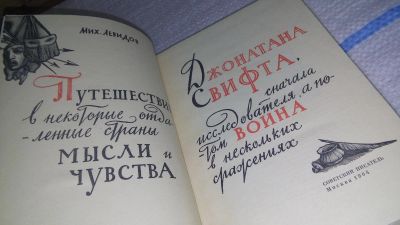 Мих. Левидов
Путешествие
в некоторые отда
-ленные страны
мысли и
чувства
Джонатана
Свифта,
сначала
исследователя, а по-
-том воина
в нескольких
сражениях
СОВЕТСКИЙ ПИСАТЕЛЬ
Москва 1964